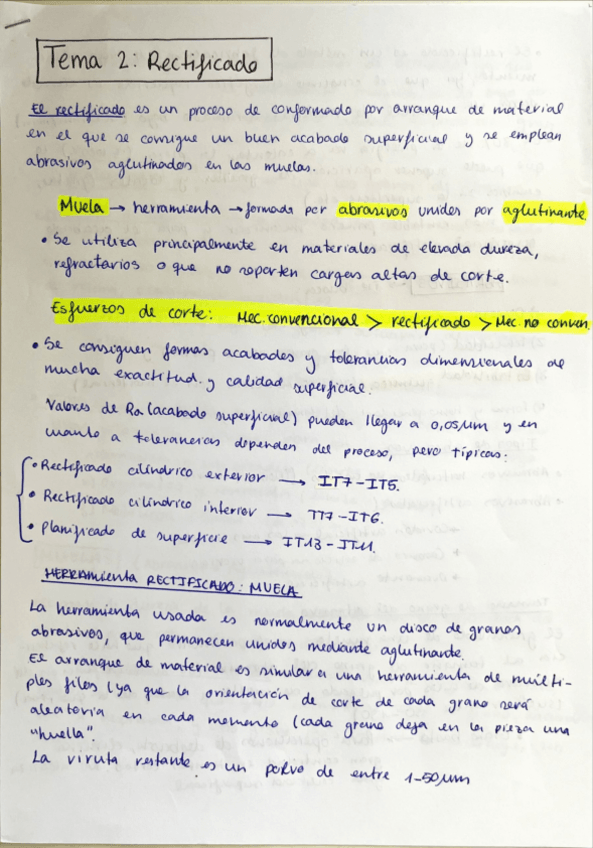 Tema 2: Rectificado
El rectificado es un proceso de conformado por arranque de material
en el que se consigue un buen acabado superficial y se emplean
abrasivos aglutinados en las muelas.
Muela → herramienta → formada por abrasivos unidos por aglutinante.
• Se utiliza principalmente en materiales de elevada dureza,
refractarios o que no soporten cargas altas de corte.
Esfuerzos de corte: Mec. convencional > rectificado > Mec. no conven.
• Se consiguen formas acabadas y tolerancias dimensionales de
mucha exactitud. y calidad superficial.
Valores de Ra (acabado superficial) pueden llegar a 0,05μm y en
cuanto a tolerancias dependen del proceso, pero típicas:
• Rectificado cilíndrico exterior → IT7-IT5.
• Rectificado cilíndrico interior → IT7-IT6.
• Planificado de superficie → IT13-IT11.
HERRAMIENTA RECTIFICADO: MUELA
La herramienta usada es normalmente un disco de granos
abrasivos, que permanecen unidos mediante aglutinante.
El arranque de material es similar a una herramienta de múlti-
ples filos (ya que la orientación de corte de cada grano será
aleatoria en cada momento (cada grano deja en la pieza una
"huella".
La viruta restante es un polvo de entre 1-50μm